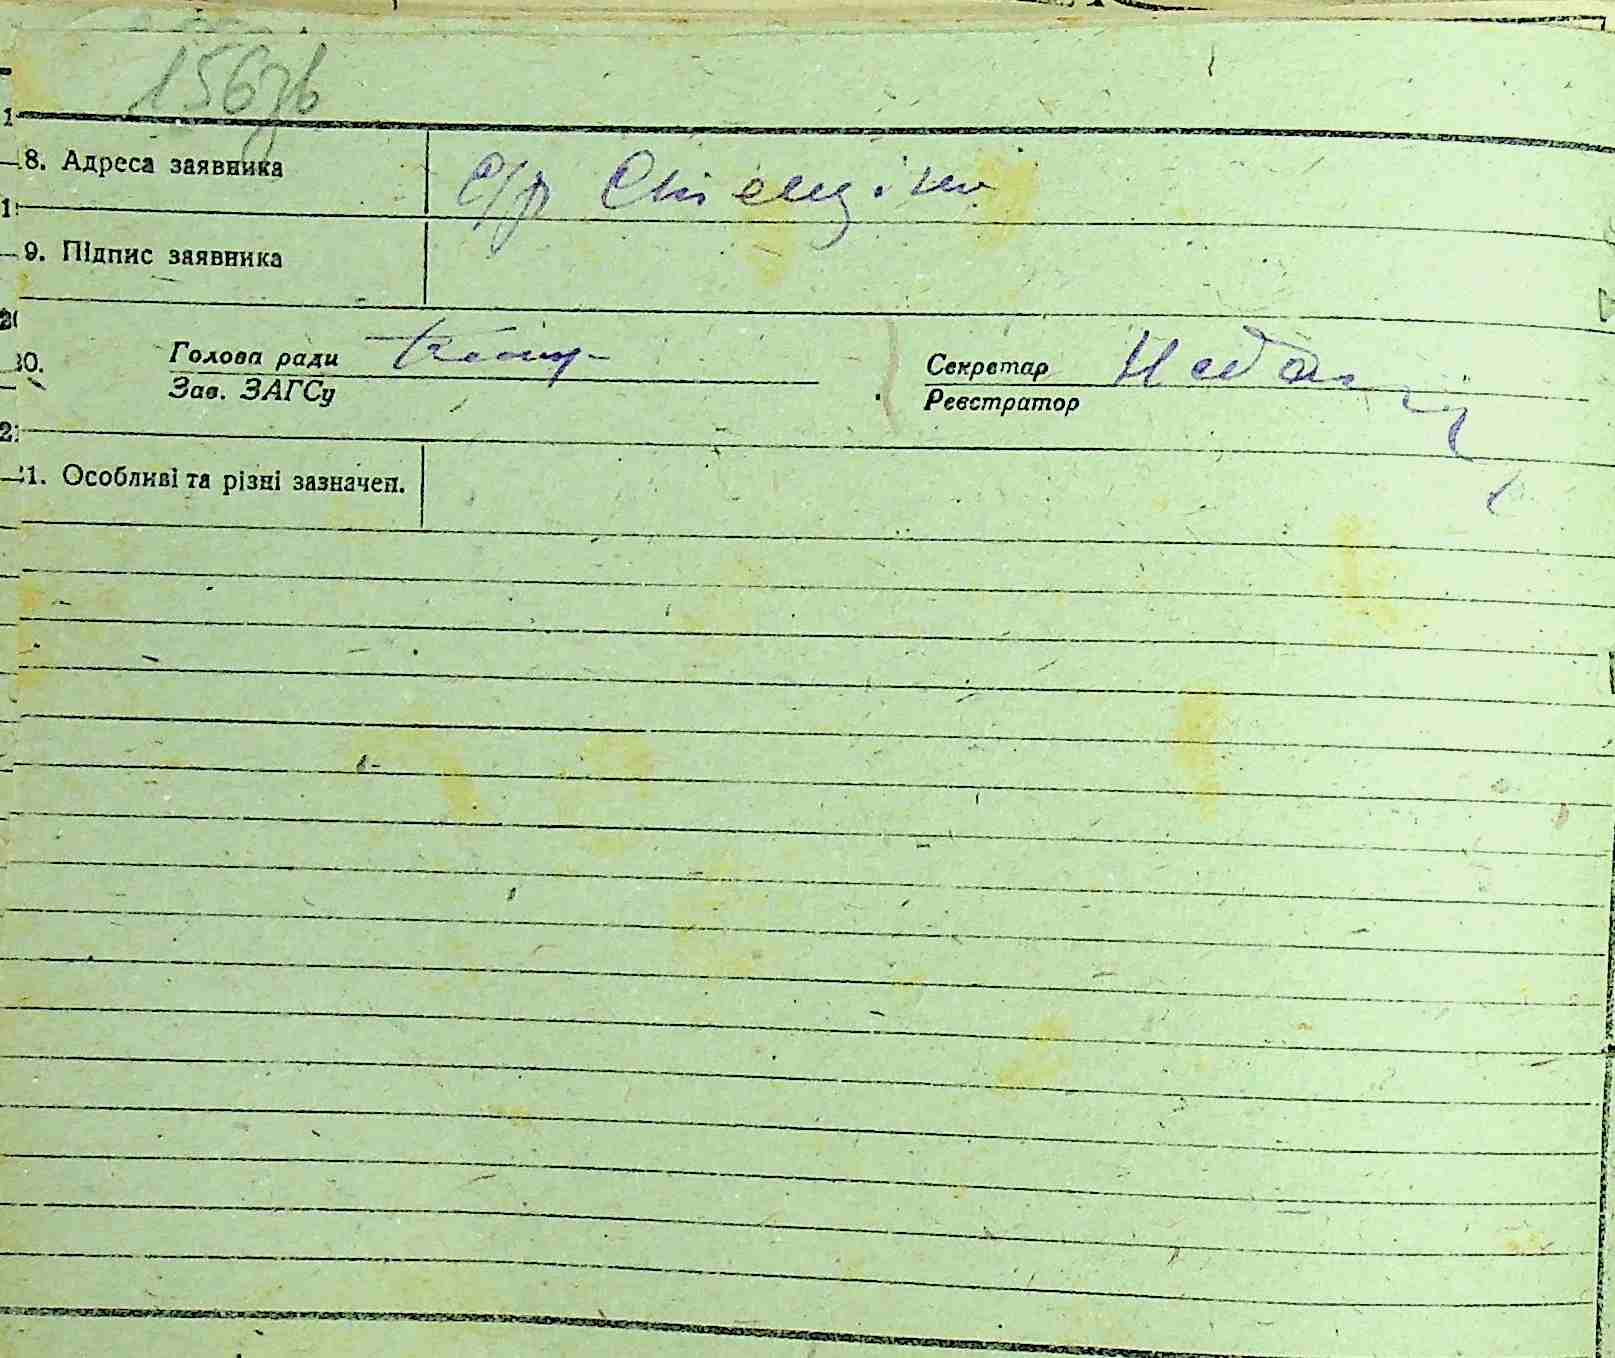 156зв
18. Адреса заявника с/р
19. Підпис заявника
20. Голова ради
Зав. ЗАГСу
Секретар
Реєстратор
21. Особливі та різні зазначен.